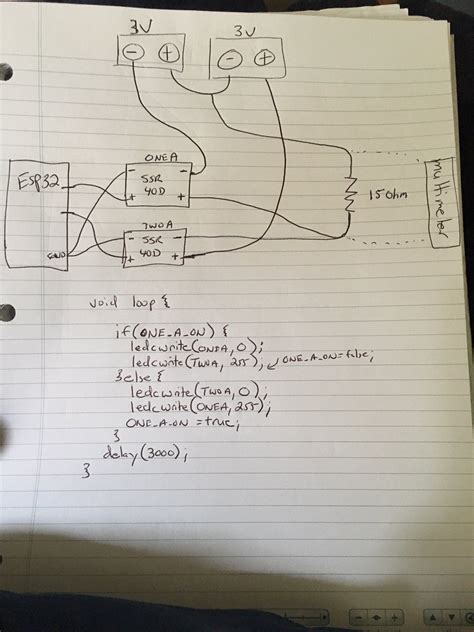 3V
3V
- +
- +
ONEA
ESP32
- SSR -
+ 40D +
15 Ohm
multimeter
TWOA
GND
- SSR -
+ 40D +
void loop {
if(ONE_A_ON) {
ledcwrite(ONEA, 0);
ledcwrite(TWOA, 255); ONE_A_ON=false;
}else {
ledcwrite(TWOA, 0);
ledcwrite(ONEA, 255);
ONE_A_ON = true;
}
delay(3000);
}